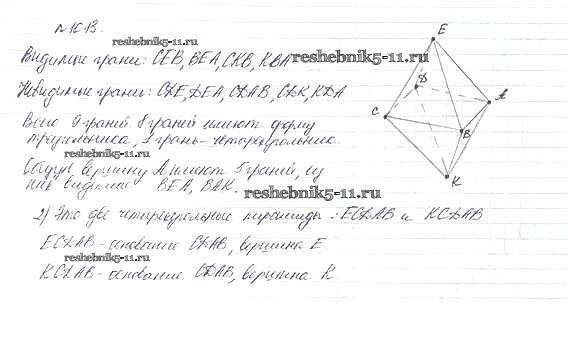 №1013.
reshebnik5-11.ru
Видимые грани: CEB, BEA, CKB, KBA
reshebnik5-11.ru
Невидимые грани: CDE, DEA, CDAB, CDK, KDA
Всего 9 граней 8 граней имеют форму
треугольника, 1 грань - четырехугольник.
reshebnik5-11.ru
Общую вершину A имеют 5 граней, из
них видимые BEA, BAK.
reshebnik5-11.ru
2) Это две четырехугольные пирамиды: ECDAB и KCDAB
ECDAB - основание CDAB, вершина E
reshebnik5-11.ru
KCDAB - основание CDAB, вершина K
E
D
A
C
B
K